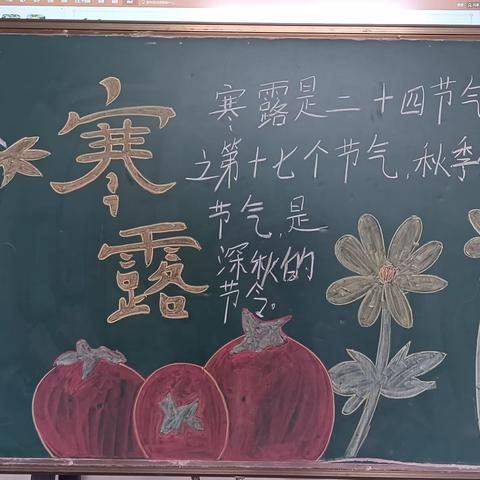 寒露
寒露是二十四节气
之第十七个节气,秋季
节气,是
深秋的
节令。